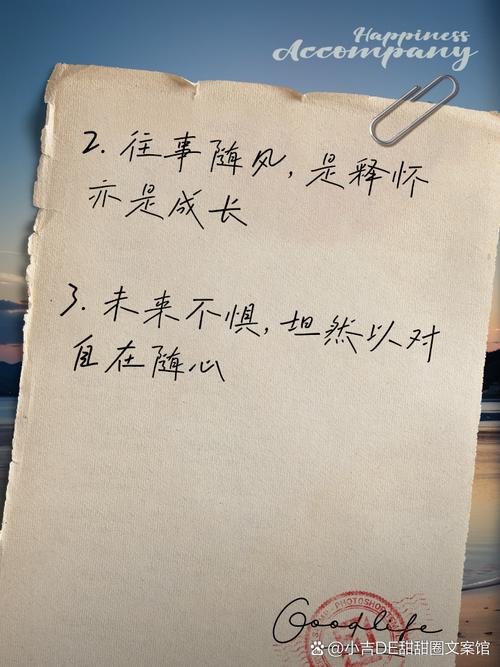 Happiness
Accompany
2. 往事随风,是释怀
亦是成长
3. 未来不惧,坦然以对
自在随心
PHOTOSHOP
Goodlife
小吉DE甜甜圈文案馆